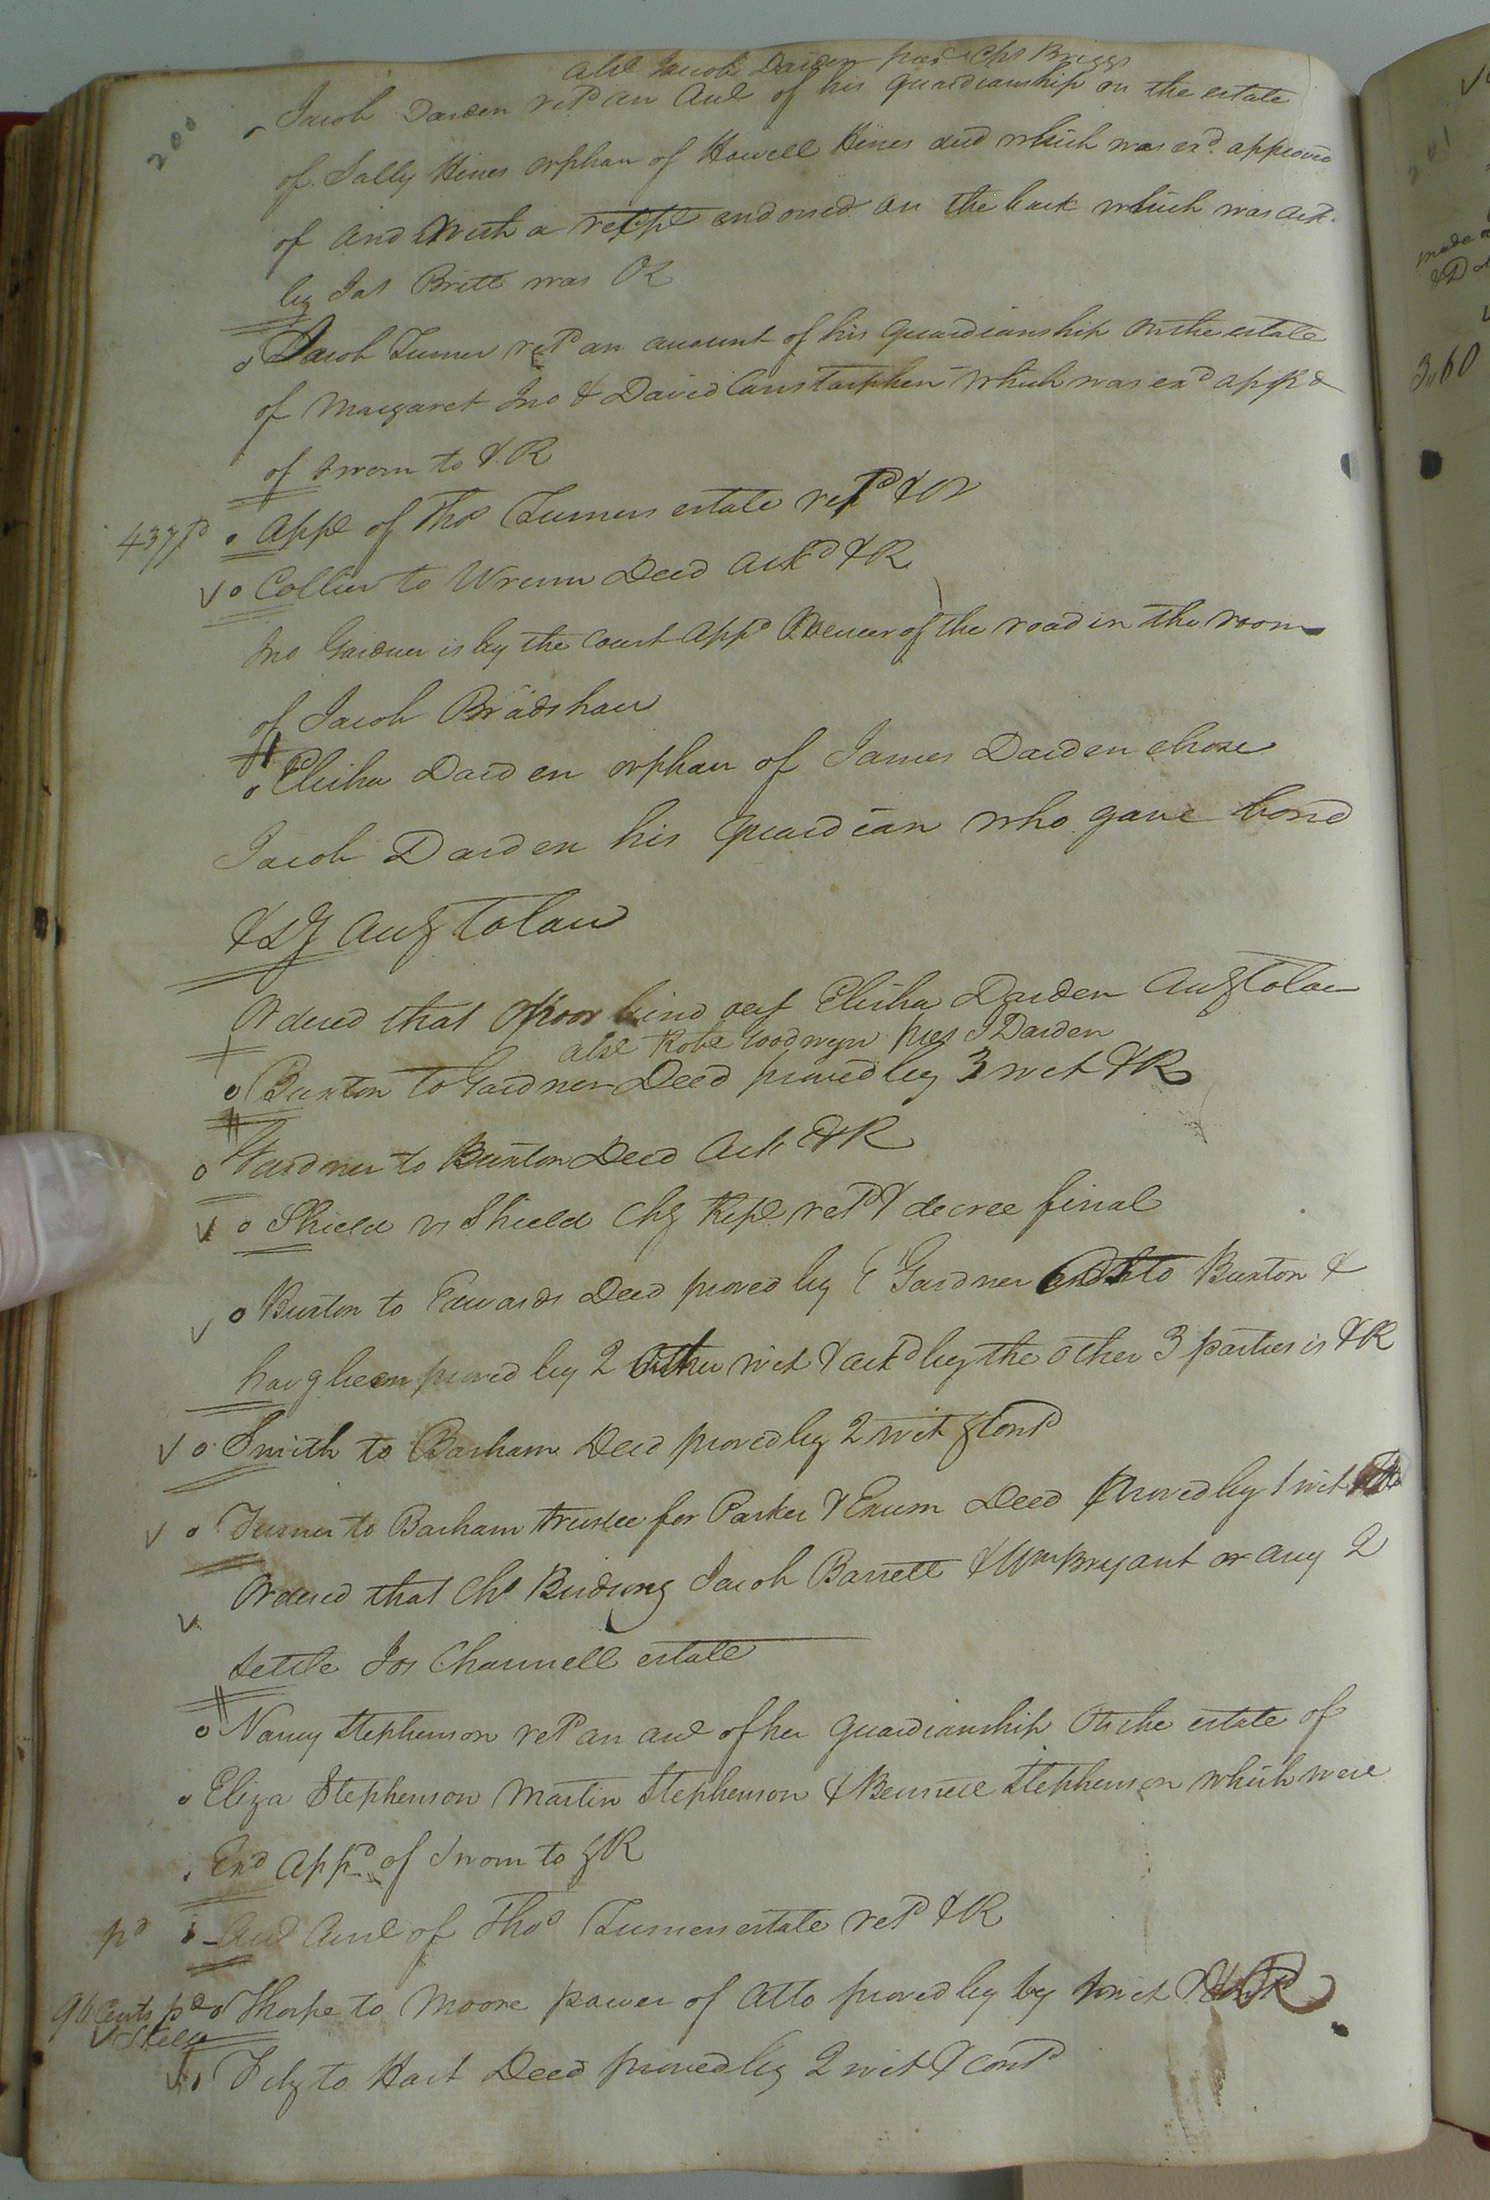 200
abst Jacob Darden pres Chs Briggs
Jacob Darden retd an Acct of his guardianship on the estate
of Sally Hines orphan of Howell Hines decd which was exd approved
of and with a endorsed on the back which was ack
by Jas Britt was OR
Jacob Turner retd an account of his guardianship on the estate
of Margaret Jno & David Carstarphen which was exd appd
of sworn to & R
437 pd Appt of Thos Turners estate retd & OR
Collier to Wrenn Deed Ackd & R
Jno Gardner is by the Court appd of the road in the room
of Jacob Bradshaw
Elisha Darden orphan of James Darden chose
Jacob Darden his guardian who gave bond
& Sy Acc to law
Ordered that O poor bind out Elisha Darden Acc to law
abst Robt Goodwyn pres J Darden
Buxton to Gardner Deed proved by 3 wit & R
Gardner to Buxton Deed Ack & R
Shield vs Shield Chy Rept retd & decree final
Buxton to Edwards Deed proved by E Gardner to Buxton &
havg been proved by 2 other wit & ackd by the other 3 parties is & R
Smith to Barham Deed proved by 2 wit & Contd
Turner to Barham trustee for Parker & Exum Deed proved by 1 wit
Ordered that Chs Jacob Barrett & Wm Bryant or any 2
settle Jos Channell estate
Nancy Stephenson retd an acct of her guardianship on the estate of
Eliza Stephenson Martin Stephenson & Bennett Stephenson which were
Exd Appd of sworn to & R
pd Acct of Thos Turners estate retd & R
96 Cents pd Thorpe to Moore power of Atto proved by by wit & R
to Hart Deed proved by 2 wit & contd
made
3,,60